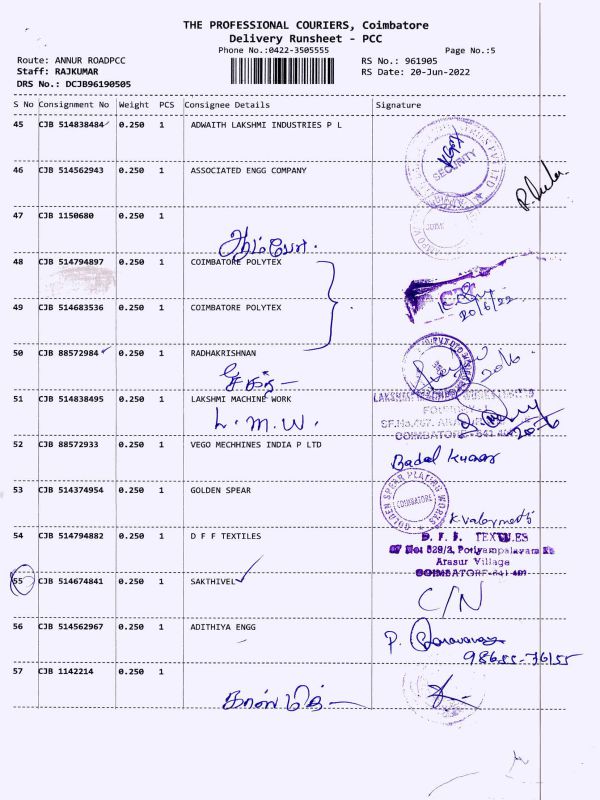 THE PROFESSIONAL COURIERS, Coimbatore
Delivery Runsheet - PCC
Phone No.:0422-3505555 Page No.:5
Route: ANNUR ROADPCC RS No.: 961905
Staff: RAJKUMAR RS Date: 20-Jun-2022
DRS No.: DCJB96190505
S No Consignment No. Weight PCS Consignee Details Signature
45 CJB 514838484 0.250 1 ADWAITH LAKSHMI INDUSTRIES P L
SECURITY
46 CJB 514562943 0.250 1 ASSOCIATED ENGG COMPANY
47 CJB 1150680 0.250 1
48 CJB 514794897 0.250 1 COIMBATORE POLYTEX
49 CJB 514683536 0.250 1 COIMBATORE POLYTEX
20/6/22
50 CJB 88572984 0.250 1 RADHAKRISHNAN
20/6
51 CJB 514838495 0.250 1 LAKSHMI MACHINE WORK
L. M. W.
FOUNDRY
COIMBATORE-641 407
52 CJB 88572933 0.250 1 VEGO MECHHINES INDIA P LTD
Badal Kumar
53 CJB 514374954 0.250 1 GOLDEN SPEAR
GOLDEN SPEAR PLATING WORKS
COIMBATORE
54 CJB 514794882 0.250 1 D F F TEXTILES
D. F. F. TEXTILES
Arasur Village
COIMBATORE-641 407
55 CJB 514674841 0.250 1 SAKTHIVEL
C/N
56 CJB 514562967 0.250 1 ADITHIYA ENGG
57 CJB 1142214 0.250 1